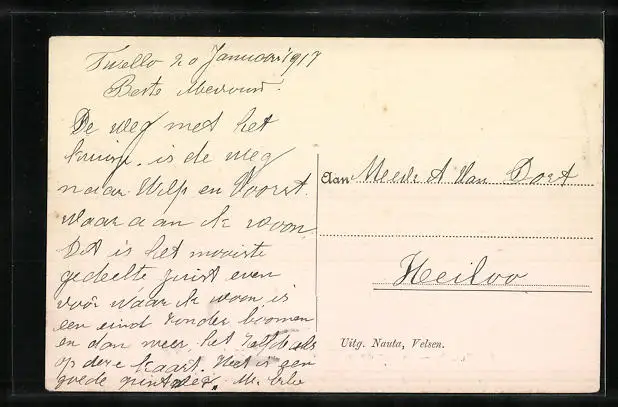 Twello 20 Januari 1917
Beste Mevrouw.
De weg met het
kruisje is de weg
naar Wilp en Voorst.
waar aan ik woon.
Dit is het mooiste
gedeelte juist even
voor waar ik woon is
een eind zonder boomen
en dan weer het zelfde als
op deze kaart. Het is een
goede
Aan Meede A Van Dort
Heiloo
Uitg. Nauta, Velsen.